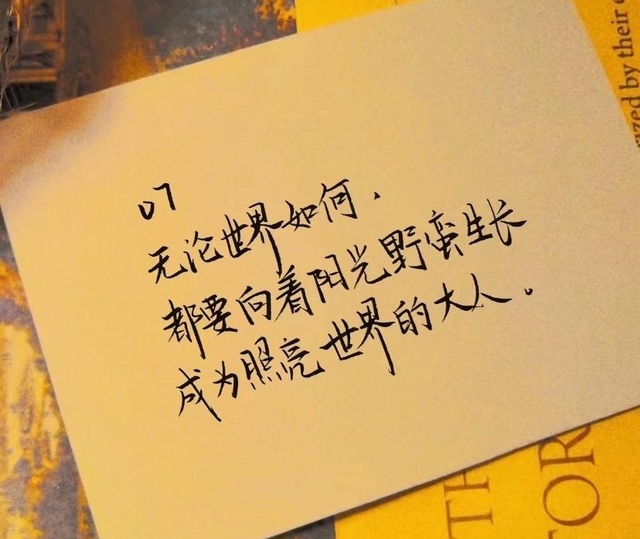 07
无论世界如何.
都要向着阳光野蛮生长
成为照亮世界的大人。
by their
TH
TOR